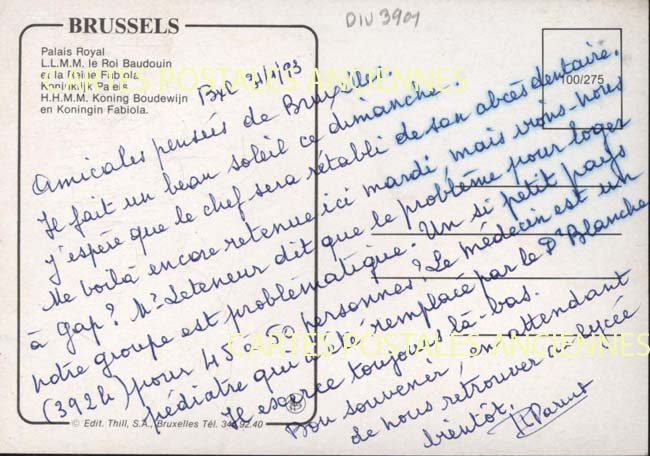 BRUSSELS
DIV 3901
Palais Royal
L.L.M.M. le Roi Baudouin
et la Reine Fabiola.
Koninklijk Paleis
H.H.M.M. Koning Boudewijn
en Koningin Fabiola.
100/275
CARTES POSTALES ANCIENNES
Bxl
Amicales pensées de Bruxelles.
Il fait un beau soleil ce dimanche.
J'espère que le chef sera rétabli de son abcès dentaire.
Me voilà encore retenue ici mardi mais irons-nous
à Gap? Mr Leteneur dit que le problème pour loger
notre groupe est problématique. Un si petit pays
(392h) pour 45 à 50 personnes? Le médecin est un
pédiatre qui a remplacé par le Dr Blanche
Il exerce toujours là-bas.
Bon souvenir, en attendant
de nous retrouver au lycée
bientôt.
CARTES POSTALES ANCIENNES
© Edit. Thill, S.A., Bruxelles Tél.